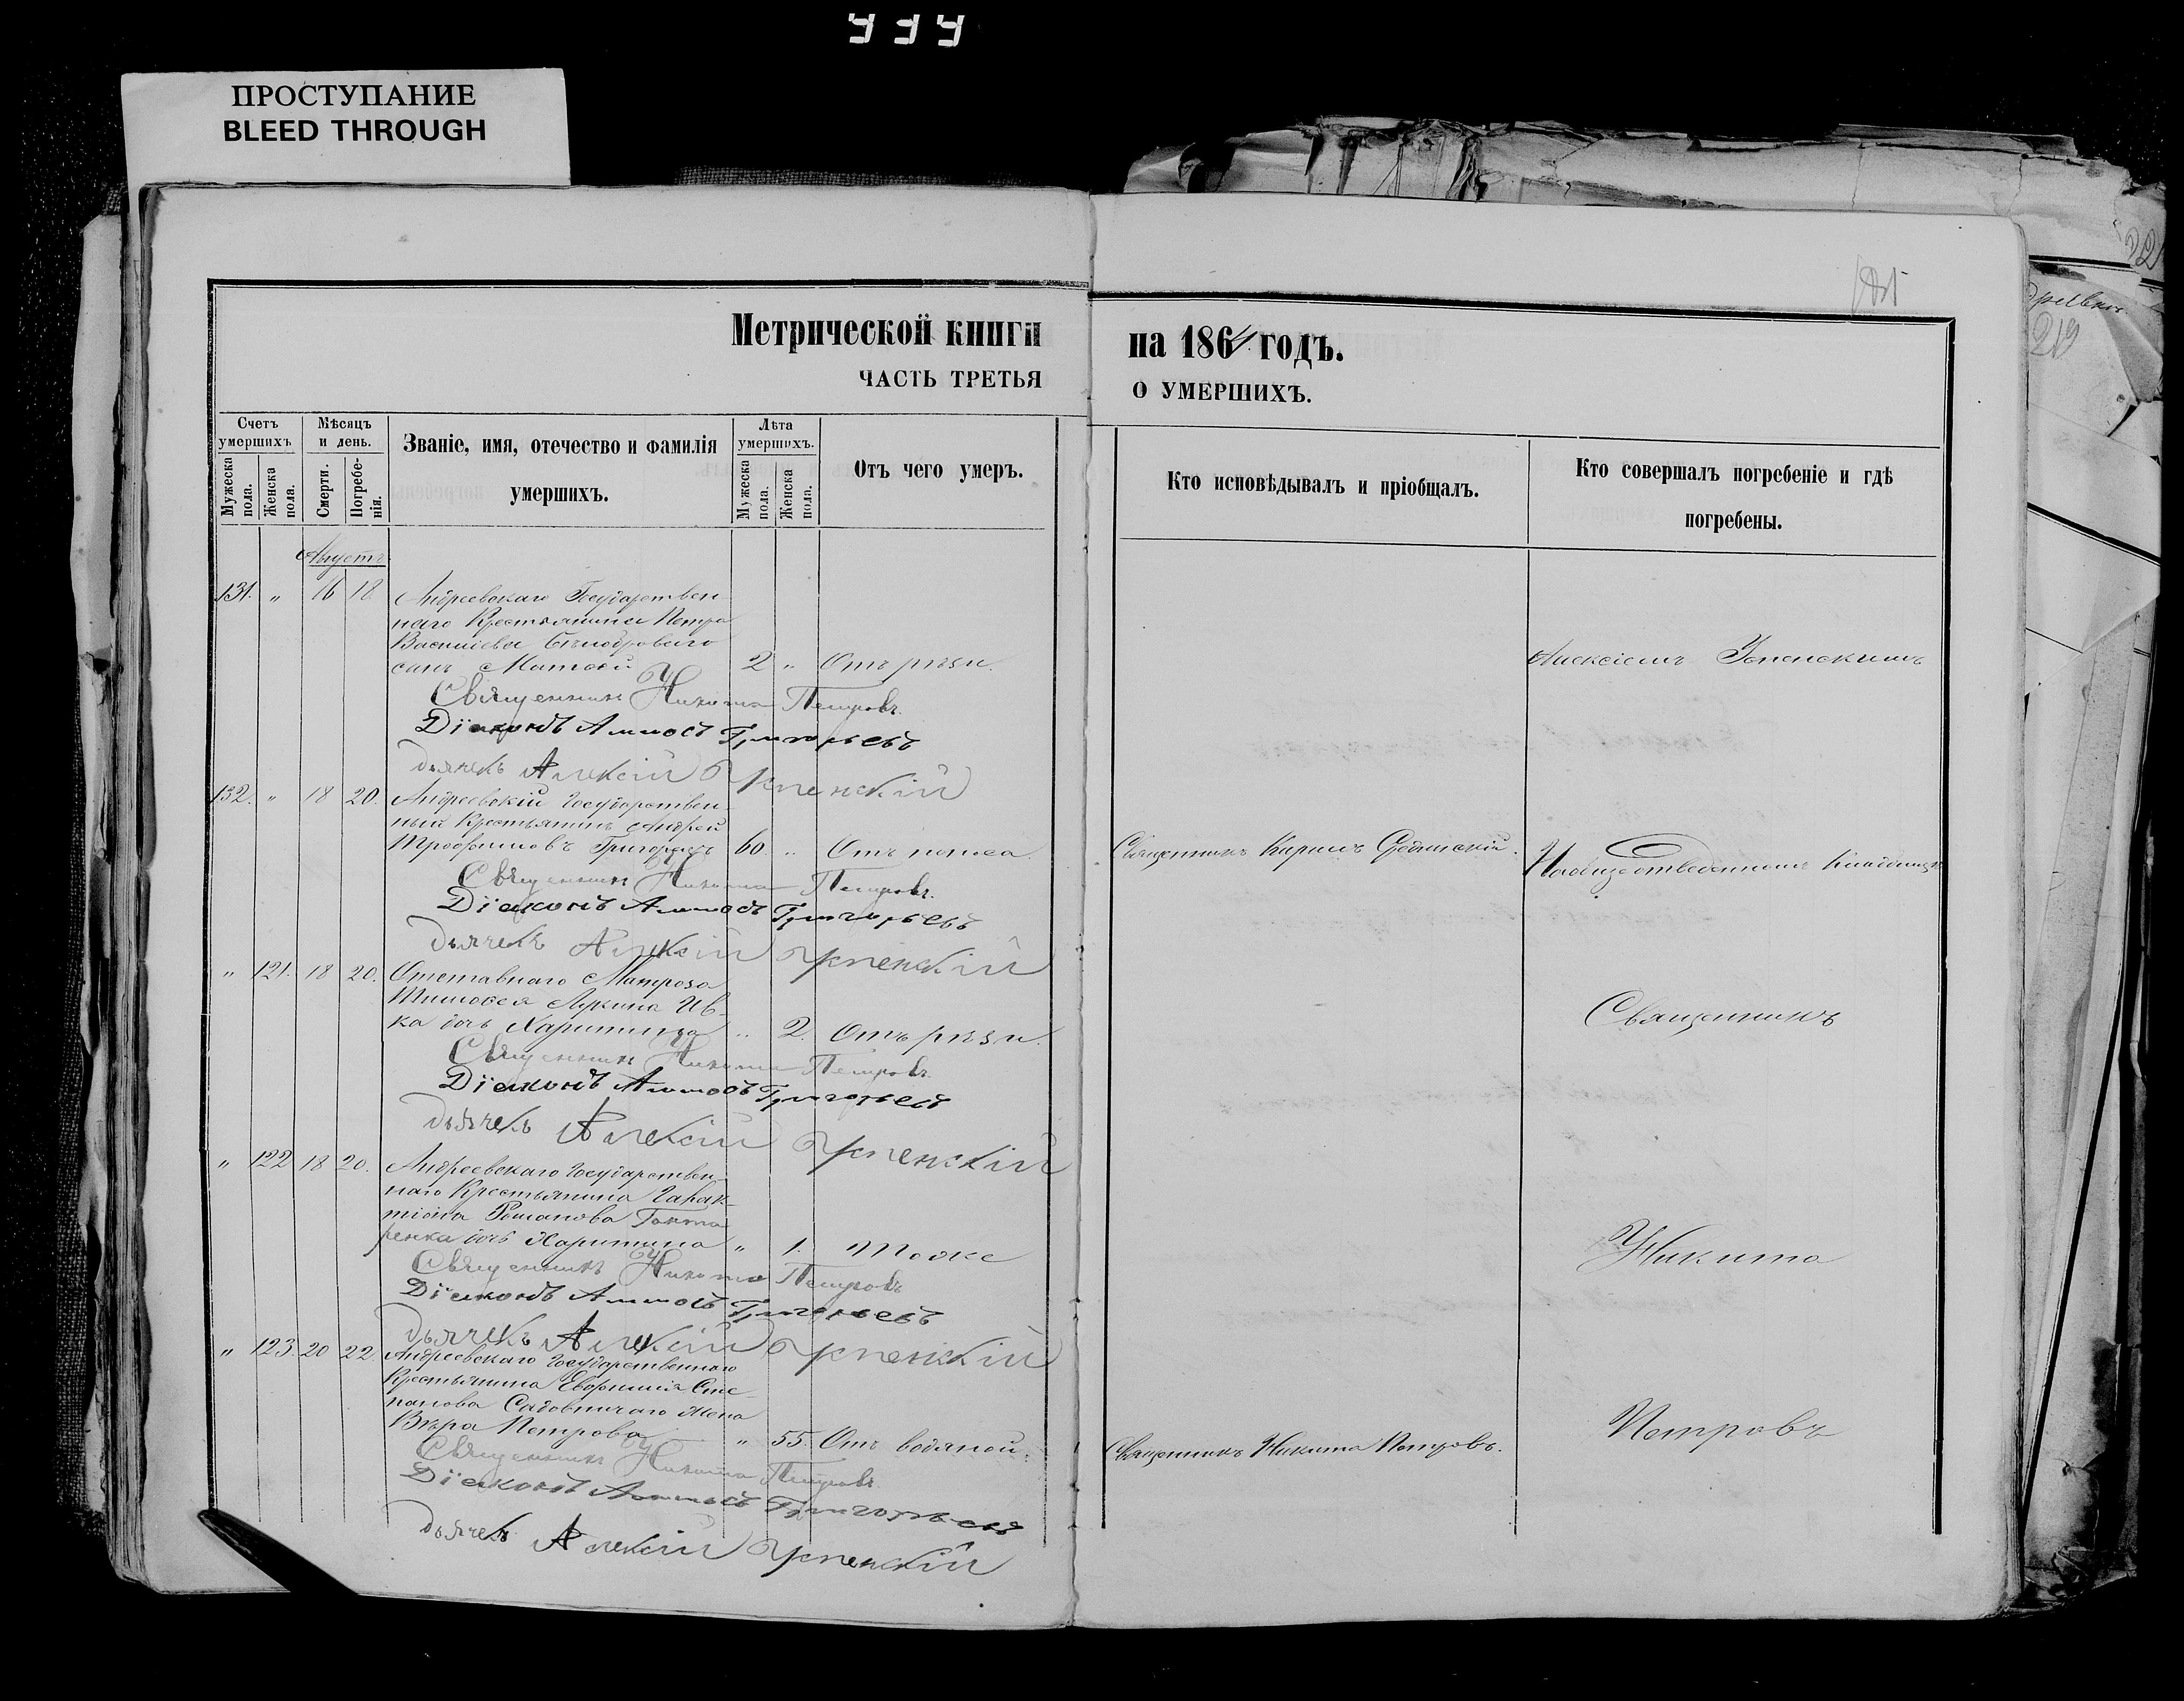 ПРОСТУПАНИЕ
BLEED THROUGH
Метрической книги на 1864 годъ.
ЧАСТЬ ТРЕТЬЯ О УМЕРШИХЪ.
Счетъ умершихъ.
Мужеска пола.
Женска пола.
Мѣсяцъ и день.
Смерти.
Погребенія.
Званіе, имя, отечество и фамилія
умершихъ.
Лѣта умершихъ.
Мужеска пола.
Женска пола.
Отъ чего умеръ.
Кто исповѣдывалъ и пріобщалъ.
Кто совершалъ погребеніе и гдѣ
погребены.
Августъ
131. " 16 18 Андреевскаго Государствен
наго Крестьянина Петра
Василіева
сынъ Матвѣй 2 " Отъ рѣзи.
Алексіемъ Успенскимъ
Священникъ Никита Петровъ.
Діаконъ Аммосъ Григорьевъ
дьячекъ Алексій Успенскій
132. " 18 20. Андреевскій Государствен
ный Крестьянинъ Андрей
Трофимовъ 60 " Отъ поноса.
Священникъ Кирилъ
На общеотведенномъ кладбищѣ
Священникъ Никита Петровъ.
Діаконъ Аммосъ Григорьевъ
Дьячекъ Алексій Успенскій
" 121. 18 20. Отставнаго Матроза
Тимофея Лукина Ив
ка дочь Харитина " 2. Отъ рѣзи.
Священникъ
Священникъ Никита Петровъ.
Діаконъ Аммосъ Григорьевъ
дьячекъ Алексій Успенскій
" 122 18 20. Андреевскаго Государствен
наго Крестьянина Галак
тіона Романова Гонта
ренка дочь Харитина " 1. Тоже
Никита
Священникъ Никита Петровъ
Діаконъ Аммосъ Григорьевъ
дьячекъ Алексій Успенскій
" 123. 20 22 Андреевскаго Государственнаго
Крестьянина Евфимія Сте
панова Садовничаго Жена
Вѣра Петрова " 55. Отъ водяной.
Священникъ Никита Петровъ.
Петровъ
Священникъ Никита Петровъ
Діаконъ Аммосъ Григорьевъ
дьячекъ Алексій Успенскій
219